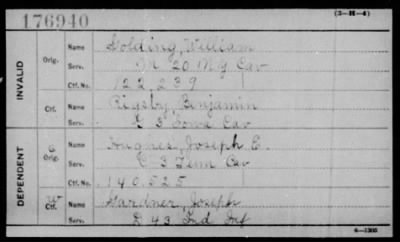 176940
(3-H-4)
INVALID
Orig.
Name Golding, William
Serv. M 20 N Y Cav
Ctf. No. 122,239
Ctf.
Name Rigsby, Benjamin
Serv. G 3 Iowa Cav
DEPENDENT
Orig.
Name Hughes, Joseph E.
Serv. C 3 Tenn Cav
Ctf. No. 140,525
Ctf.
Name Gardner, Joseph
Serv. D 43 Ind Inf